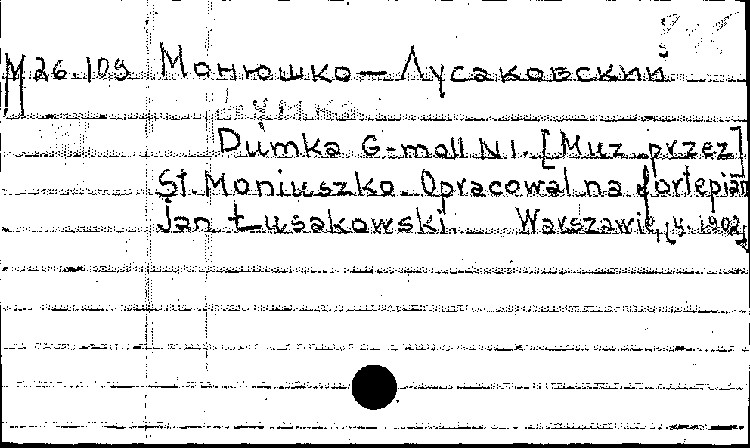 М 26.109 Монюшко – Лусаковский
Думка
Dumka G-moll N 1. [Muz przez]
St. Moniuszko. Opracowal na fortepian
Jan Łusakowski. Warszawie, 1902